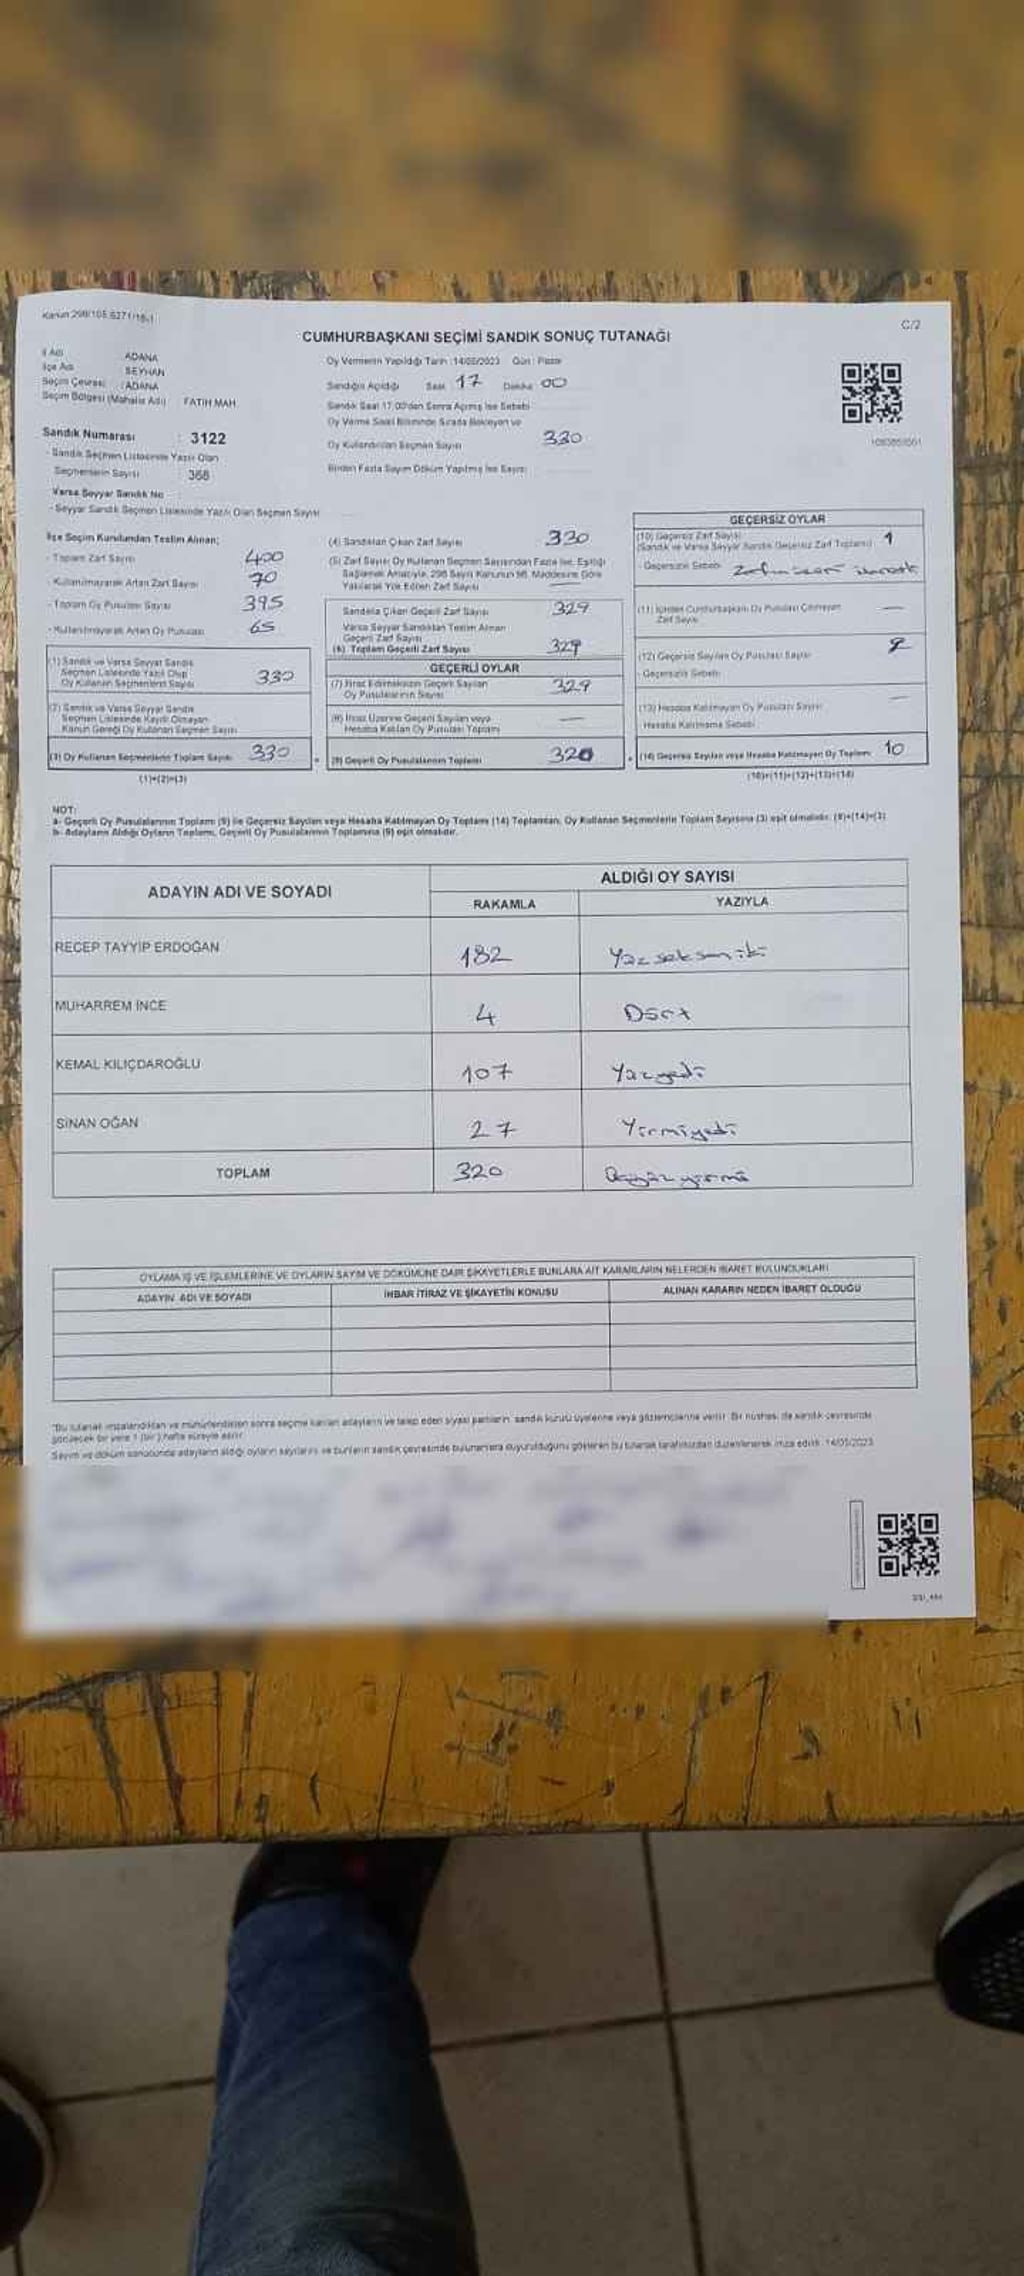 Kanun 298/105.6271/18-1
C/2
CUMHURBAŞKANI SEÇİMİ SANDIK SONUÇ TUTANAĞI
İl Adı ADANA
İlçe Adı SEYHAN
Seçim Çevresi : ADANA
Seçim Bölgesi (Mahalle Adı) FATİH MAH.
Sandık Numarası : 3122
- Sandık Seçmen Listesinde Yazılı Olan
Seçmenlerin Sayısı 368
Varsa Seyyar Sandık No
- Seyyar Sandık Seçmen Listesinde Yazılı Olan Seçmen Sayısı
Oy Vermenin Yapıldığı Tarih : 14/05/2023 Gün : Pazar
Sandığın Açıldığı Saat 17 Dakika 00
Sandık Saat 17.00'den Sonra Açılmış İse Sebebi
Oy Verme Saati Bitiminde Sırada Bekleyen ve
Oy Kullandırılan Seçmen Sayısı 330
Birden Fazla Sayım Döküm Yapılmış İse Sayısı
İlçe Seçim Kurulundan Teslim Alınan;
- Toplam Zarf Sayısı 400
- Kullanılmayarak Artan Zarf Sayısı 70
- Toplam Oy Pusulası Sayısı 395
- Kullanılmayarak Artan Oy Pusulası 65
(1) Sandık ve Varsa Seyyar Sandık
Seçmen Listesinde Yazılı Olup
Oy Kullanan Seçmenlerin Sayısı 330
(2) Sandık ve Varsa Seyyar Sandık
Seçmen Listesinde Kayıtlı Olmayan
Kanun Gereği Oy Kullanan Seçmen Sayısı
(3) Oy Kullanan Seçmenlerin Toplam Sayısı 330
(1)+(2)=(3)
(4) Sandıktan Çıkan Zarf Sayısı 330
(5) Zarf Sayısı Oy Kullanan Seçmen Sayısından Fazla İse, Eşitliği
Sağlamak Amacıyla, 298 Sayılı Kanunun 98. Maddesine Göre
Yakılarak Yok Edilen Zarf Sayısı —
Sandıkta Çıkan Geçerli Zarf Sayısı 329
Varsa Seyyar Sandıktan Teslim Alınan
Geçerli Zarf Sayısı
(6) Toplam Geçerli Zarf Sayısı 329
GEÇERLİ OYLAR
(7) İtiraz Edilmeksizin Geçerli Sayılan
Oy Pusulalarının Sayısı 329
(8) İtiraz Üzerine Geçerli Sayılan veya
Hesaba Katılan Oy Pusulası Toplamı —
(9) Geçerli Oy Pusulalarının Toplamı 320
GEÇERSİZ OYLAR
(10) Geçersiz Zarf Sayısı 1
(Sandık ve Varsa Seyyar Sandık Geçersiz Zarf Toplamı)
- Geçersizlik Sebebi
(11) İçinden Cumhurbaşkanı Oy Pusulası Çıkmayan
Zarf Sayısı —
(12) Geçersiz Sayılan Oy Pusulası Sayısı
- Geçersizlik Sebebi
(13) Hesaba Katılmayan Oy Pusulası Sayısı —
- Hesaba Katılmama Sebebi
(14) Geçersiz Sayılan veya Hesaba Katılmayan Oy Toplamı 10
(10)+(11)+(12)+(13)=(14)
NOT:
a- Geçerli Oy Pusulalarının Toplamı (9) ile Geçersiz Sayılan veya Hesaba Katılmayan Oy Toplamı (14) Toplamları, Oy Kullanan Seçmenlerin Toplam Sayısına (3) eşit olmalıdır. (9)+(14)=(3)
b- Adayların Aldığı Oyların Toplamı, Geçerli Oy Pusulalarının Toplamına (9) eşit olmalıdır.
ADAYIN ADI VE SOYADI
ALDIĞI OY SAYISI
RAKAMLA YAZIYLA
RECEP TAYYİP ERDOĞAN 182 Yüzsekseniki
MUHARREM İNCE 4 Dört
KEMAL KILIÇDAROĞLU 107 Yüzyedi
SİNAN OĞAN 27 Yirmiyedi
TOPLAM 320 Üçyüzyirmi
OYLAMA İŞ VE İŞLEMLERİNE VE OYLARIN SAYIM VE DÖKÜMÜNE DAİR ŞİKAYETLERLE BUNLARA AİT KARARLARIN NELERDEN İBARET BULUNDUKLARI
ADAYIN ADI VE SOYADI İHBAR İTİRAZ VE ŞİKAYETİN KONUSU ALINAN KARARIN NEDEN İBARET OLDUĞU
*Bu tutanak imzalandıktan ve mühürlendikten sonra seçime katılan adayların ve talep eden siyasi partilerin, sandık kurulu üyelerine veya gözlemcilerine verilir. Bir nüshası da sandık çevresinde
görülecek bir yere 1 (bir) hafta süreyle asılır.
Sayım ve döküm sonucunda adayların aldığı oyların sayılarını ve bunların sandık çevresinde bulunanlara duyurulduğunu gösteren bu tutanak tarafımızdan düzenlenerek imza edildi. 14/05/2023